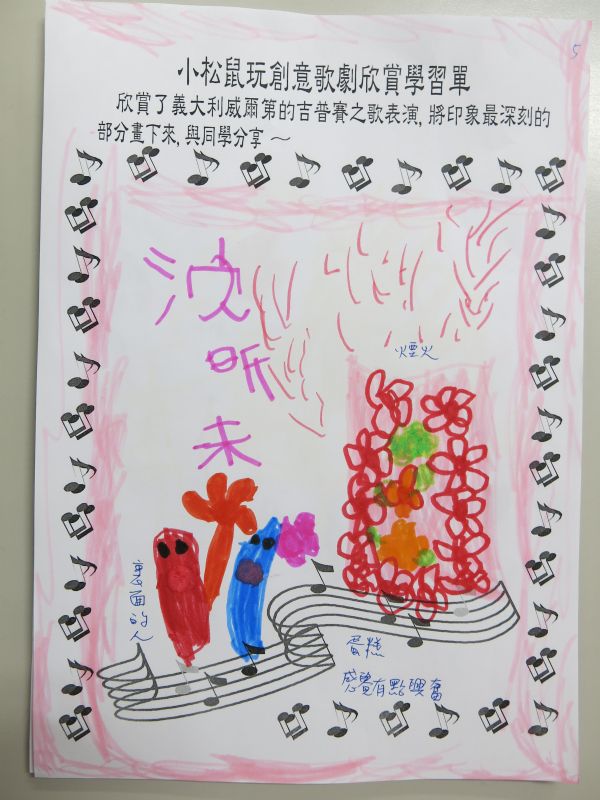 5
小松鼠玩創意歌劇欣賞學習單
欣賞了義大利威爾第的吉普賽之歌表演,將印象最深刻的
部分畫下來,與同學分享～
沈
昕
未
煙火
裏面的人
蛋糕
感覺有點興奮